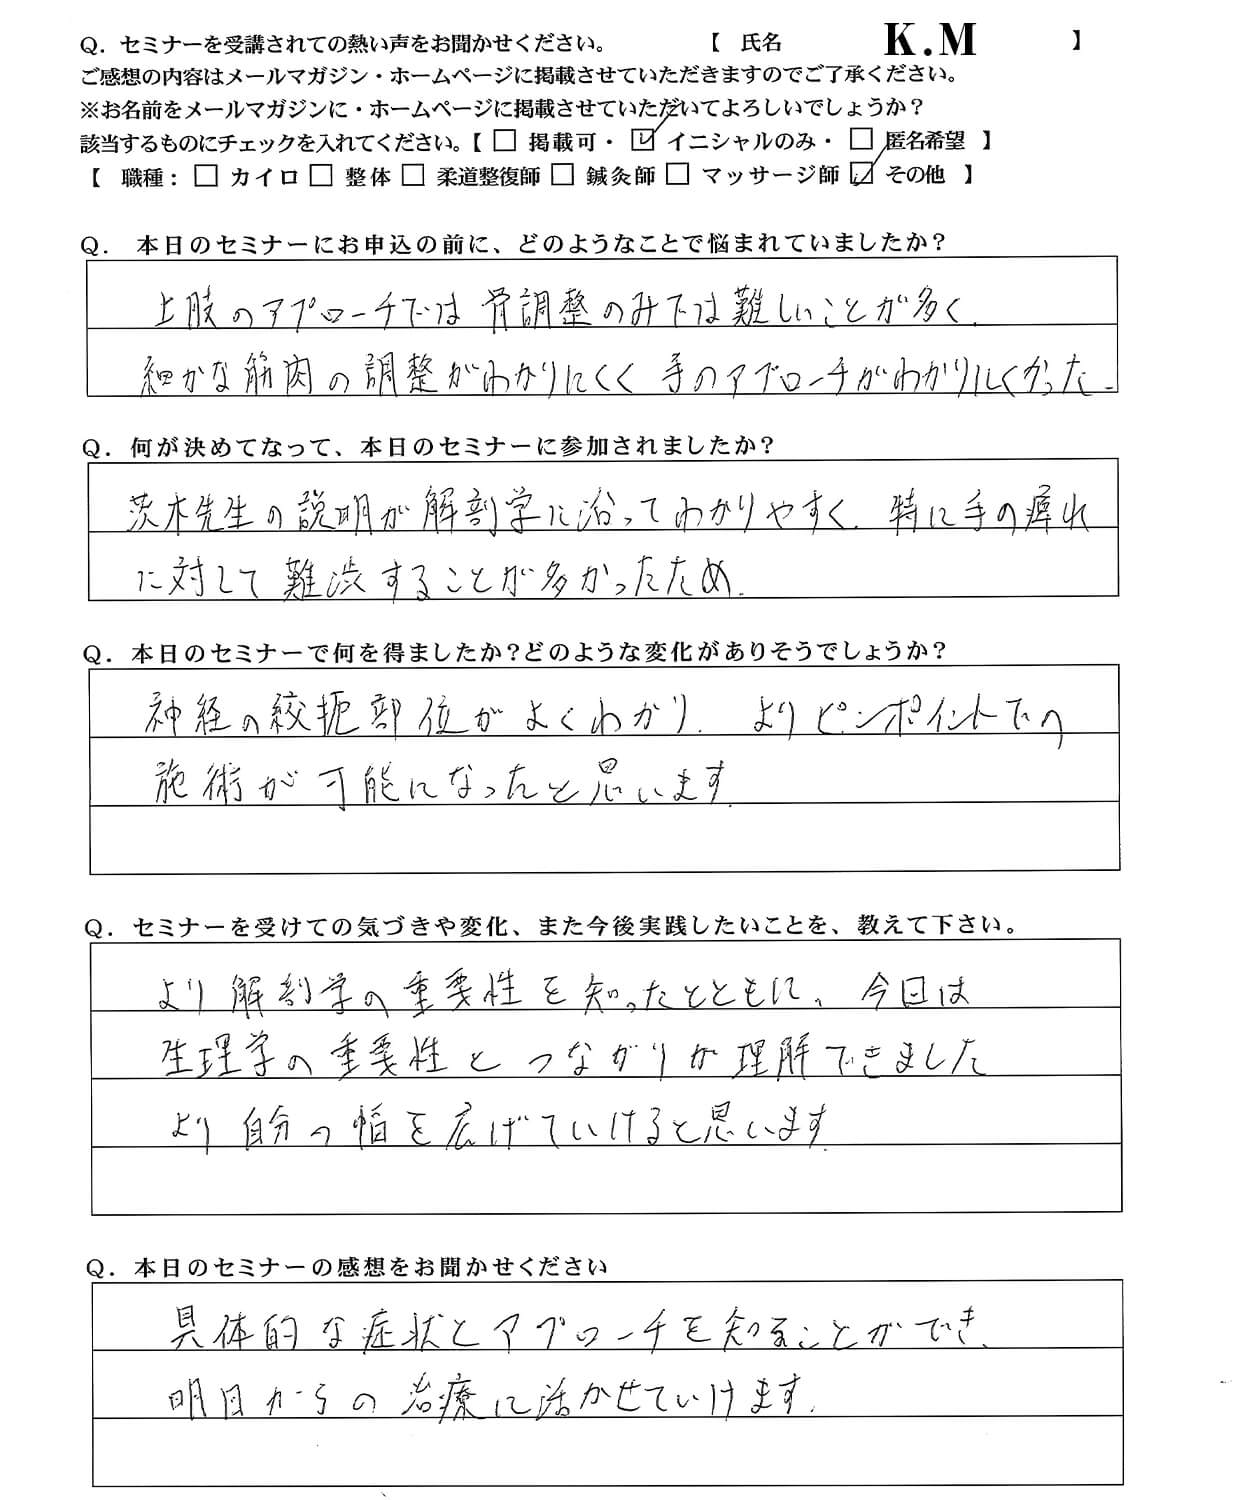 Q. セミナーを受講されての熱い声をお聞かせください。 【 氏名 K.M 】
ご感想の内容はメールマガジン・ホームページに掲載させていただきますのでご了承ください。
※お名前をメールマガジンに・ホームページに掲載させていただいてよろしいでしょうか?
該当するものにチェックを入れてください。【 □ 掲載可・ ☑ イニシャルのみ・ □ 匿名希望 】
【 職種: □ カイロ □ 整体 □ 柔道整復師 □ 鍼灸師 □ マッサージ師 ☑ その他 】
Q. 本日のセミナーにお申込の前に、どのようなことで悩まれていましたか?
上肢のアプローチでは骨調整のみでは難しいことが多く、
細かな筋肉の調整がわかりにくく手のアプローチがわかりにくかった。
Q. 何が決めてなって、本日のセミナーに参加されましたか?
茨木先生の説明が解剖学に沿ってわかりやすく、特に手の痺れ
に対して難渋することが多かったため。
Q. 本日のセミナーで何を得ましたか?どのような変化がありそうでしょうか?
神経の絞扼部位がよくわかり、よりピンポイントでの
施術が可能になったと思います。
Q. セミナーを受けての気づきや変化、また今後実践したいことを、教えて下さい。
より解剖学の重要性を知ったとともに、今回は
生理学の重要性とつながりが理解できました
より自分の幅を広げていけると思います。
Q. 本日のセミナーの感想をお聞かせください
具体的な症状とアプローチを知ることができ、
明日からの治療に活かせていけます。